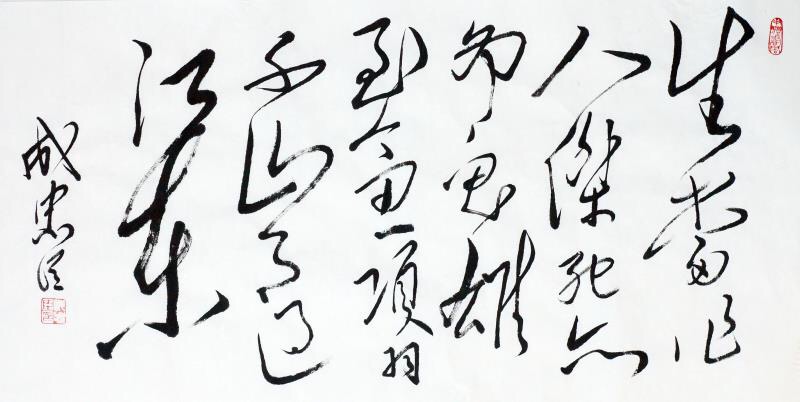 生當作
人傑死亦
為鬼雄
至今思項羽
不肯過
江東
成忠